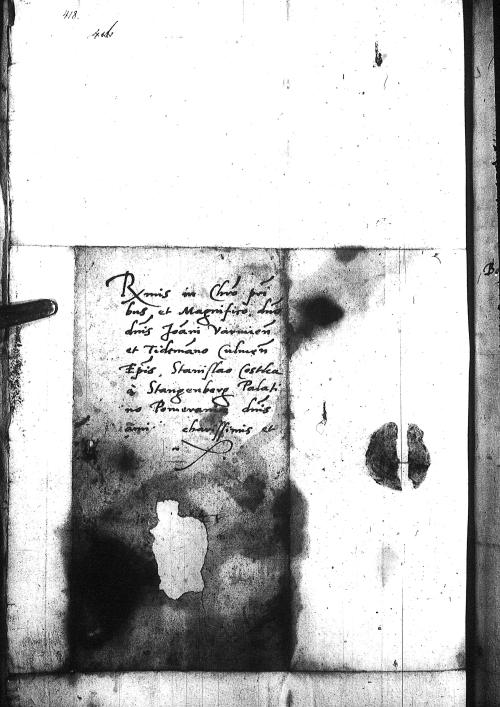 418.
Rmis in Chro pri
bus, et Magnifico duo
dnis Joāni Varmien̄
et Tidemāno Culmen̄
Epis, Stanislao Costka
à Stangenberg Palati
no Pomeraniae dnis
charissimis et
B.